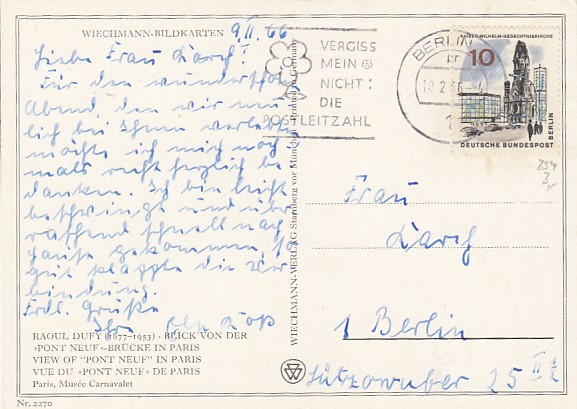 WIECHMANN-BILDKARTEN
9.II.66
Liebe Frau Larch!
Für den wunderschön
Abend, den wir neu
lich bei Ihnen verlebten
möchte ich mich noch
mals recht herzlich be
danken. Ich bin leicht
beschwingt und über
raschend schnell nach
Hause gekommen, so
gut klappte die Ver
bindung.
Frdl. Grüße
Ihre
RAOUL DUFY (1877-1953) · BLICK VON DER
»PONT NEUF«-BRÜCKE IN PARIS
VIEW OF "PONT NEUF" IN PARIS
VUE DU »PONT NEUF« DE PARIS
Paris, Musée Carnavalet
Nr. 2270
WIECHMANN-VERLAG Starnberg vor München
Germany
VERGISS
MEIN
NICHT:
DIE
POSTLEITZAHL
BERLIN
10.2.66
KAISER-WILHELM-GEDÄCHTNISKIRCHE
10
BERLIN
DEUTSCHE BUNDESPOST
254
Frau
Larch
1 Berlin
Lützowufer 25 II